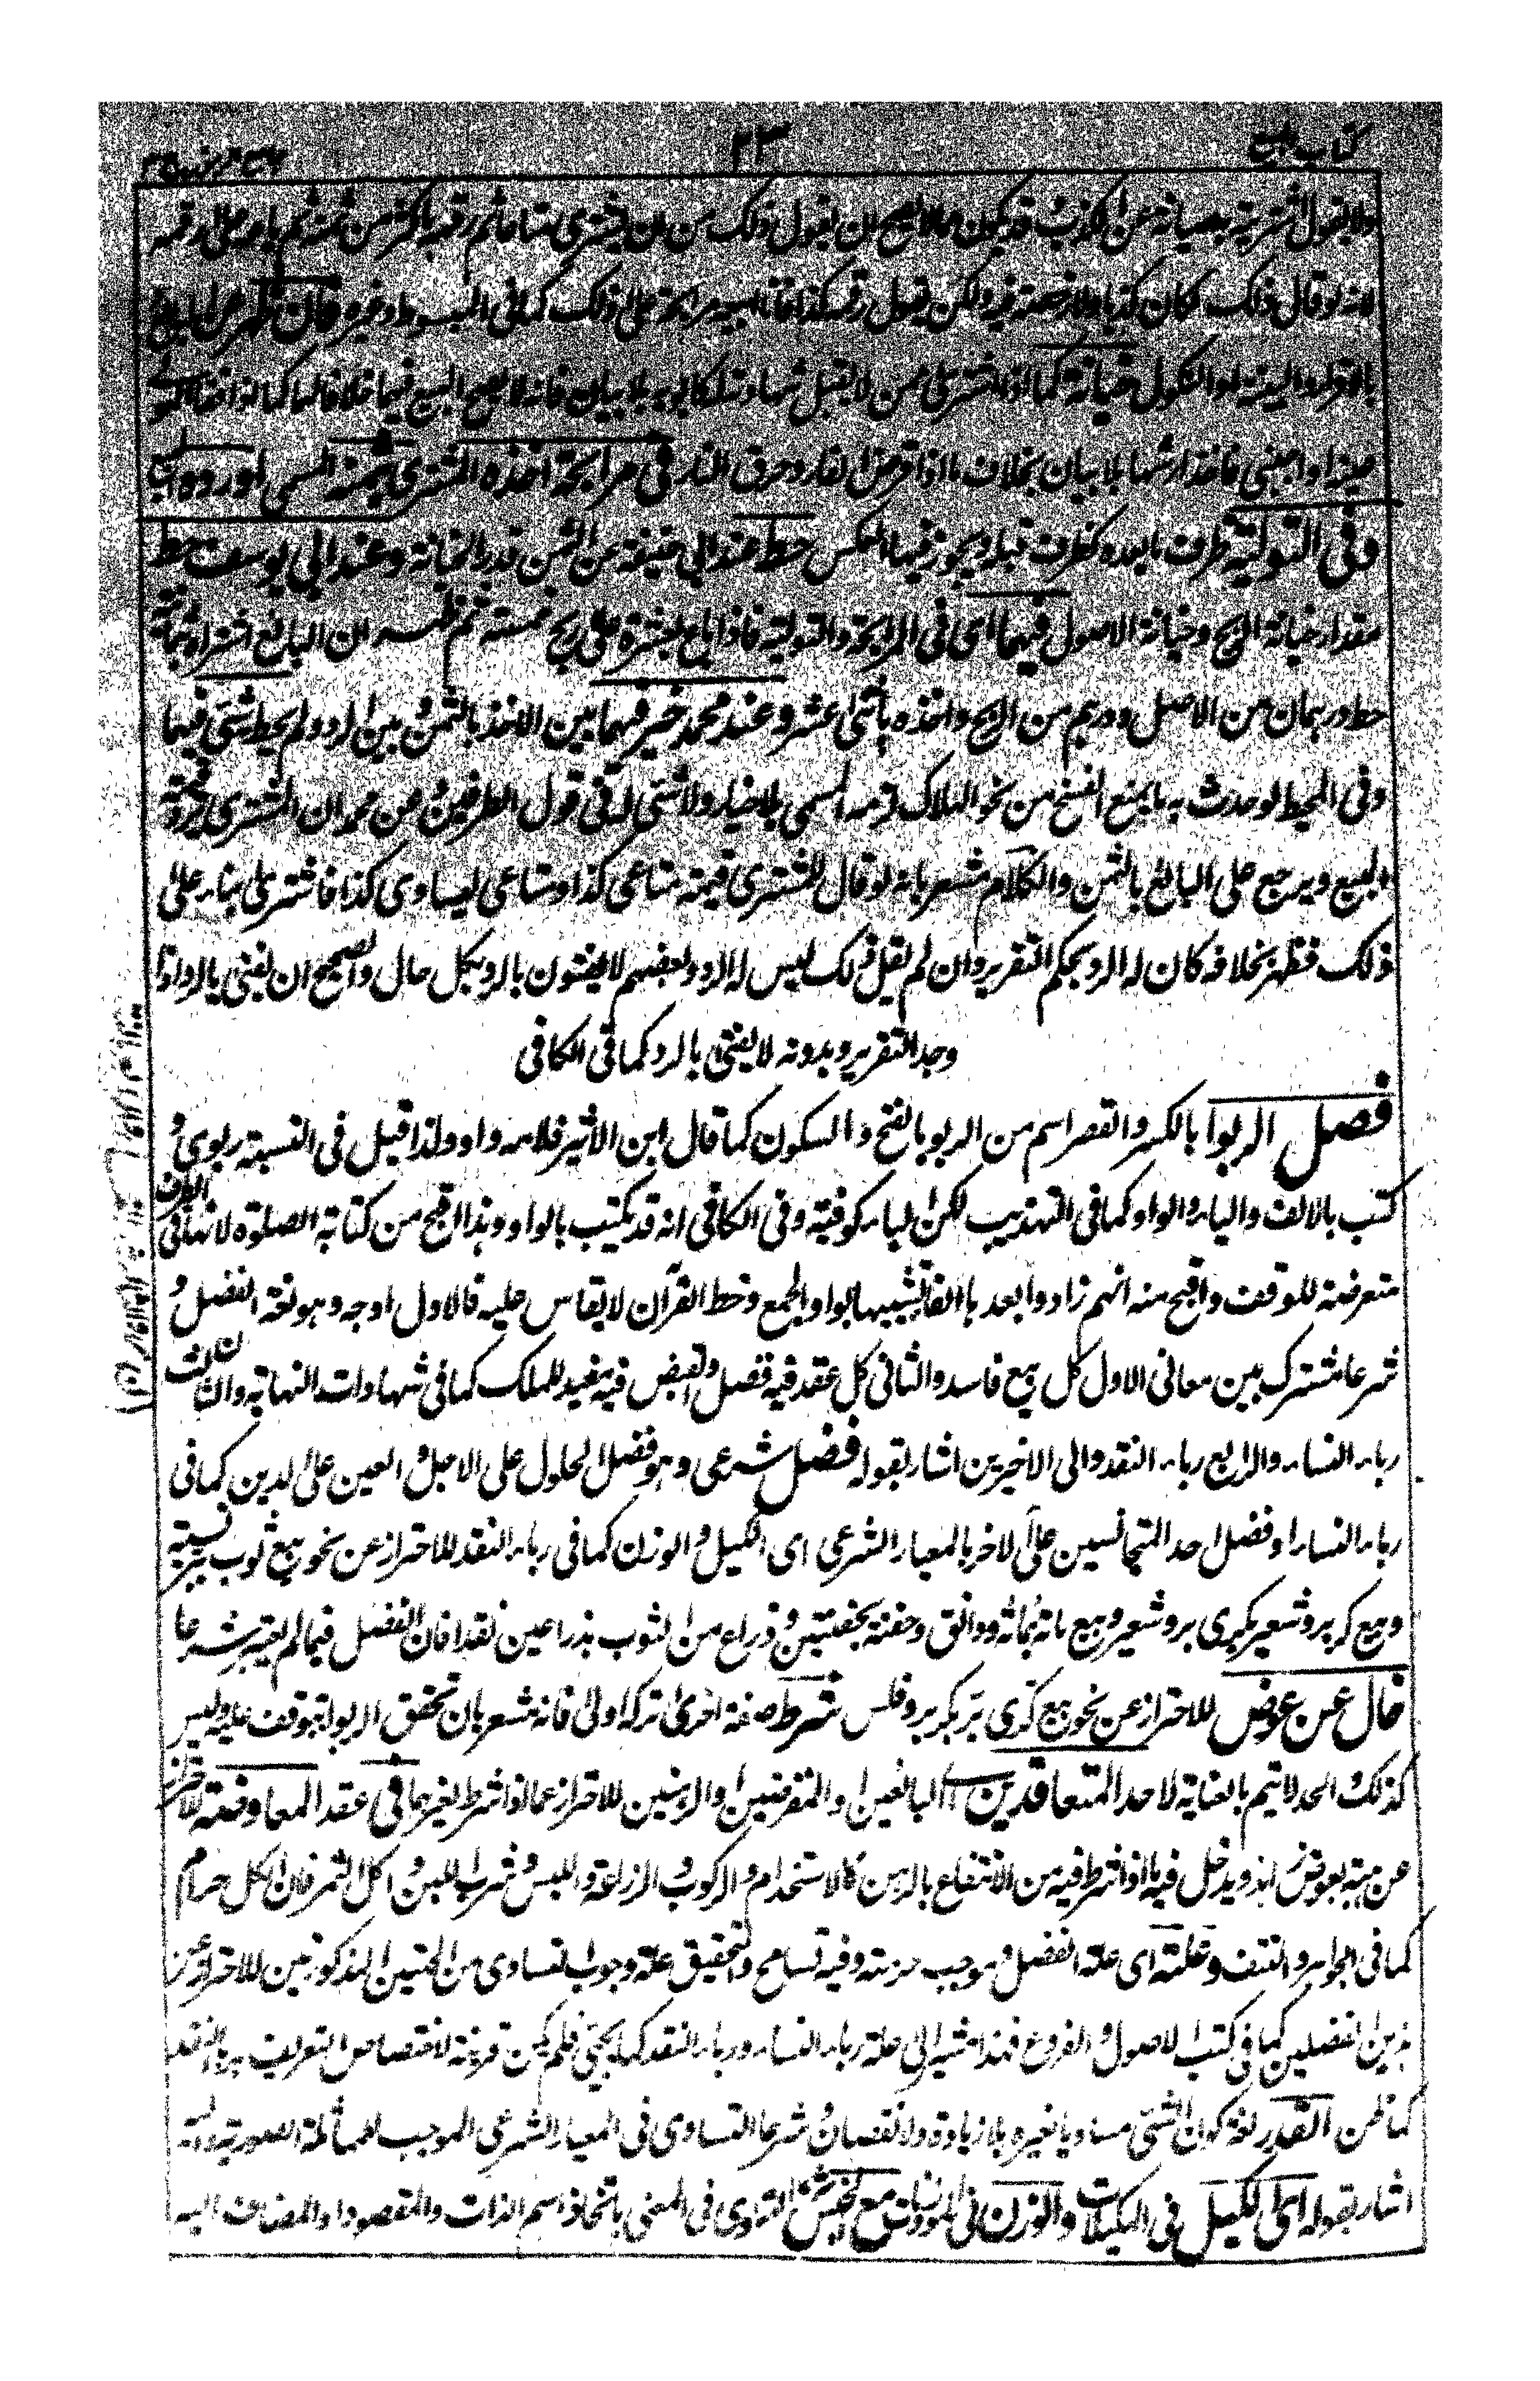 كتاب البيع
٢٣
ولا يقول اشتريته بصيانة عن الكذب قد يكون مالا يصح ان يقول ذلك من ان يشترى متاعا ثم رقمه باكثر من ثمنه ثم باعه على رقمه
لانه لو قال ذلك كان كذبا ولا رخصة فيه ولكن يقول رقمه كذا فانا ابيعه مرابحة على ذلك كما فى المبسوط وغيره فان ظهر للبايع
بالاقرار او البينة او النكول خيانة كما اذا اشترى ممن لا يقبل شهادته له كابويه بلا بيان فانه لا يصح البيع فيها خلافا لهما كما اذا
عينه او اجنبى فاخذ ارشها بلا بيان بخلاف ما اذا قرض الفار وحرق النار فى مرابحة اخذه المشترى بثمنه المسمى او رده
وفى التولية ظرف ما بعده وكظرف قبله ويجوز فيهما العكس حط عند ابى حنيفة من الثمن قدر الخيانة وعند ابى يوسف حط
مقدار خيانة الربح وخيانة الاصول فيهما اى فى المرابحة والتولية فاذا باع بعشرة على ربح خمسة ثم ظهر ان البائع اشتراه بثمانية
حط درهمان من الاصل ودرهم من الربح واخذه باثنى عشر وعند محمد خير فيهما بين الاخذ بالثمن وبين الرد ولم يحط شئ فيهما
وفى المحيط لو حدث به ما يمنع الفسخ من نحو الهلاك لزمه المسمى بلا خيار ولا شئ له فى قول الطرفين وعن محمد ان المشترى يرد قيمة
المبيع ويرجع على البائع بالثمن والكلام مشعر بانه لو قال للمشترى قيمة متاعى كذا او متاعى يساوى كذا فاشترى بناء على
ذلك فظهر بخلافه كان له الرد بحكم التقرير وان لم يقل ذلك ليس له الرد وبعضهم لا يفتون بالرد بكل حال والصحيح ان يفتى بالرد اذا
وجد التقرير وبدونه لا يفتى بالرد كما فى الكافى
فصل الربوا بالكسر والقصر اسم من الربو بالفتح والسكون كما قال ابن الاثير فلامه واو ولذا قيل فى النسبة ربوى و
كتب بالالف والياء والواو كما فى التهذيب لكن الياء كوفية وفى الكافى انه قد يكتب بالواو وهذا اقبح من كتابة الصلوة لانها فى الطرف
متعرضة للوقف واقبح منه انهم زادوا بعدها الفا تشبيها بواو الجمع وخط القرآن لا يقاس عليه فالاول اوجه وهو لغة الفضل و
شرعا مشترك بين معانى الاول كل بيع فاسد والثانى كل عقد فيه فضل والقبض فيه مفيد للملك كما فى شهادات النهاية والثالث
رباء النساء والرابع رباء النقد والى الاخيرين اشار بقوله فضل شرعى وهو فضل الحلول على الاجل والعين على الدين كما فى
رباء النساء او فضل احد المتجانسين على الاخر بالمعيار الشرعى اى الكيل والوزن كما فى رباء النقد للاحتراز عن نحو بيع ثوب ببر نسية
وبيع كر بر وشعير بكرى بر وشعير وبيع مائة بمائة ودانق وحفنة بحفنتين وذراع من الثوب بذراعين نقدا فان الفضل فيها لم يعتبر شرعا
خال عن عوض للاحتراز عن نحو بيع كرى بر بكر بر وفلس شرط صفة اخرى تركه اولى فانه مشعر بان تحقق الربوا يتوقف عليه وليس
كذلك والحد لا يتم بالعناية لاحد المتعاقدين اى البائعين او المقرضين او الراهنين للاحتراز عما اذا شرط لغيرهما فى عقد المعاوضة للاحتراز
عن هبة بعوض زائد ويدخل فيه ما اذا شرط فيه من الانتفاع بالرهن كالاستخدام والركوب والزراعة واللبس وشرب اللبن واكل الثمر فان الكل حرام
كما فى الجواهر والنتف وعلته اى علة الفضل وموجب حرمته وفيه تسامح والتحقيق علة وجوب التساوى من الجهتين المذكورتين للاحتراز عن
هذين الفضلين كما فى كتب الاصول والفروع فهذا مشير الى علة رباء النساء ورباء النقد كما يجئ فلم يكن قرينة لاختصاص التعريف برباء النقد
كما ظن القدر لغة كون الشئ مساويا لغيره بلا زيادة ولا نقصان وشرعا التساوى فى المعيار الشرعى الموجب للمماثلة الصورية واليه
اشار بقوله اى الكيل فى المكيلات والوزن فى الموزونات مع الجنس التساوى فى المعنى باتحاد اسم الذات والمقصود او المضاف اليه